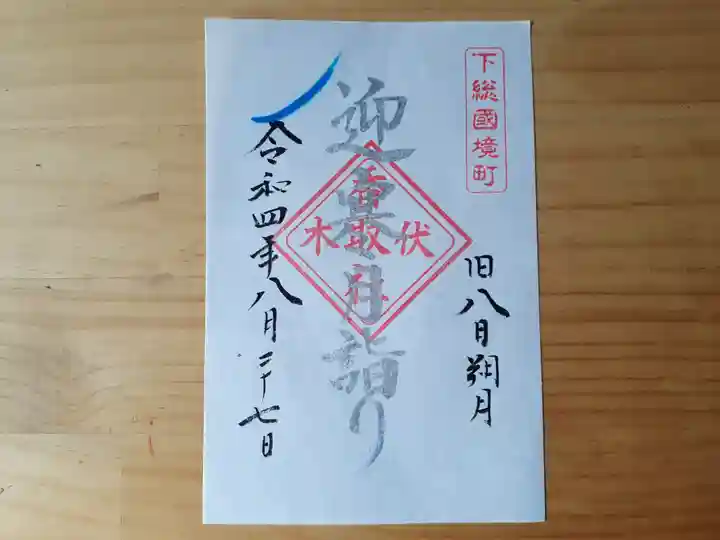 下総國境町
旧八月朔月
迎暮月詣り
伏木
香取社
令和四年八月二十七日